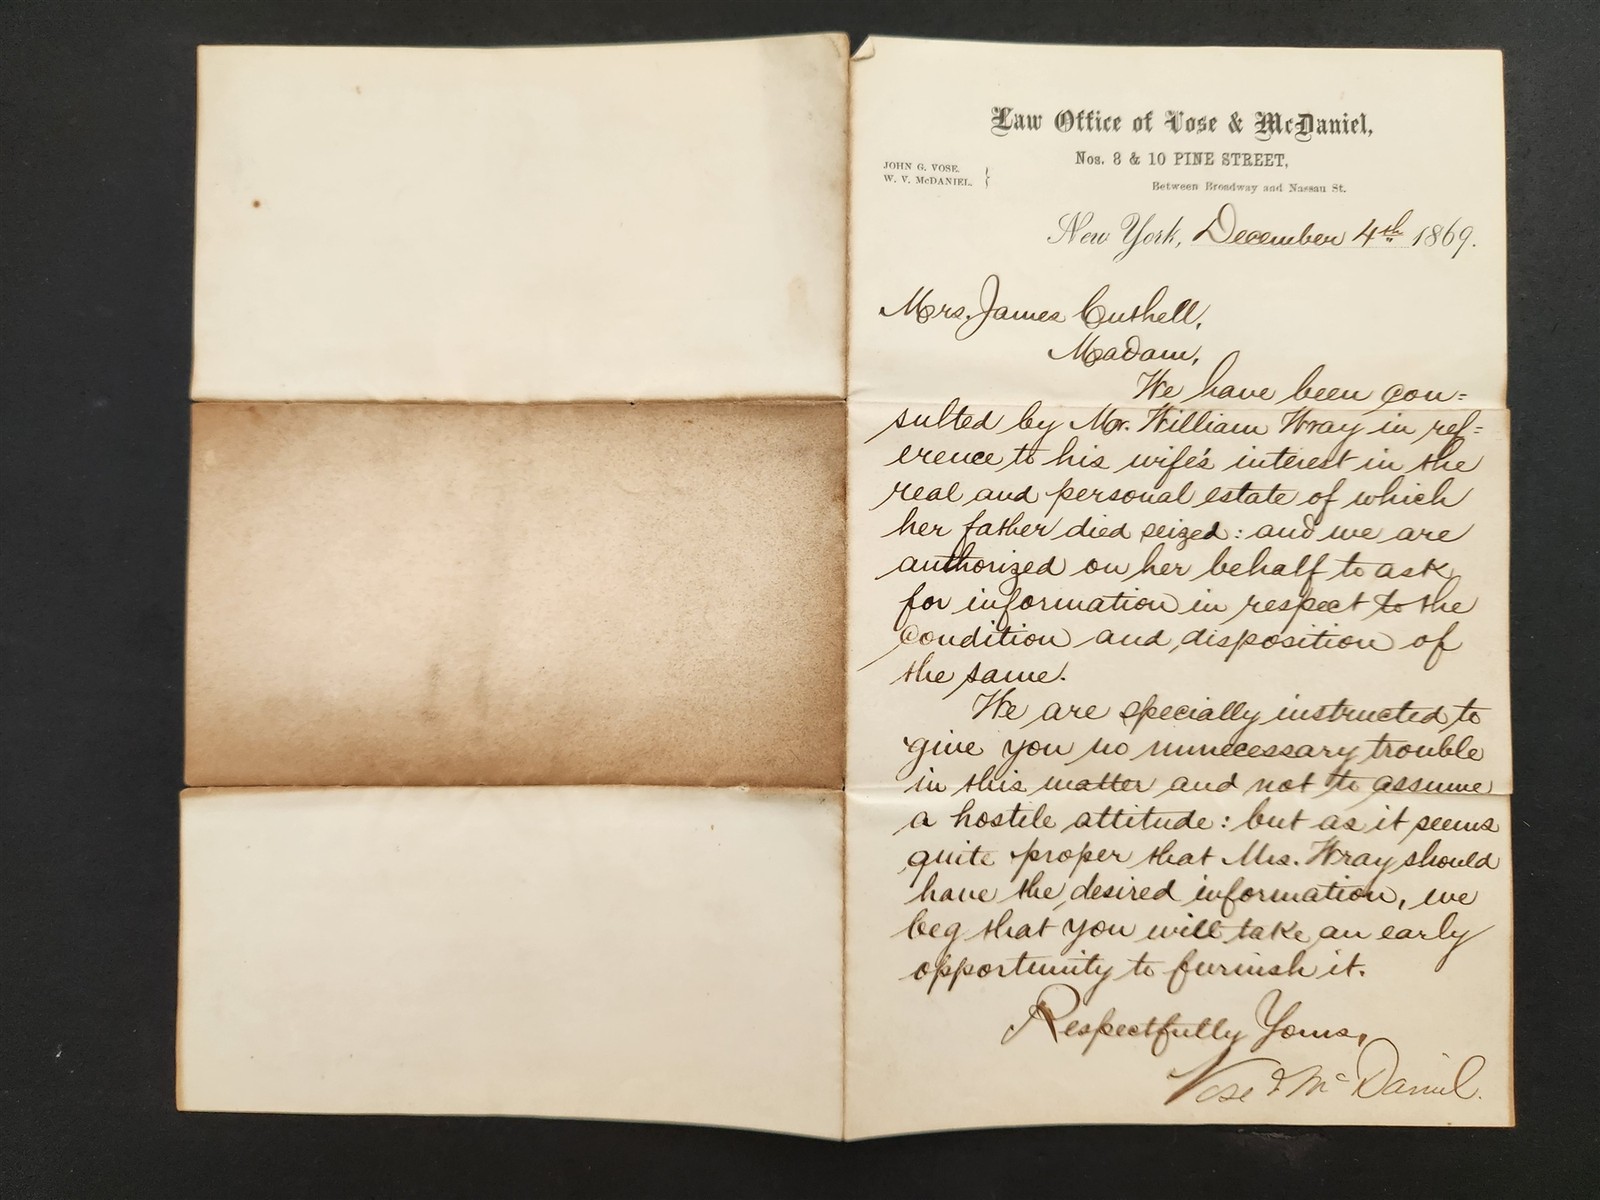 Law Office of Vose & McDaniel,
Nos. 8 & 10 PINE STREET,
JOHN G. VOSE.
W. V. McDANIEL.
Between Broadway and Nassau St.
New York, December 4th 1869.
Mrs. James Cushell,
Madam,
We have been con=
sulted by Mr. William Wray in ref=
erence to his wife's interest in the
real and personal estate of which
her father died seized: and we are
authorized on her behalf to ask
for information in respect to the
condition and disposition of
the same.
We are specially instructed to
give you no unnecessary trouble
in this matter and not to assume
a hostile attitude: but as it seems
quite proper that Mrs. Wray should
have the desired information, we
beg that you will take an early
opportunity to furnish it.
Respectfully Yours,
Vose & McDaniel.